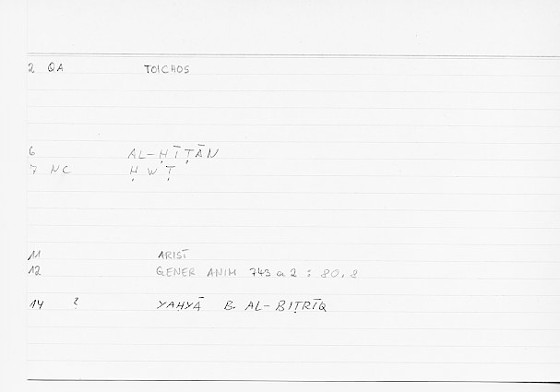 2 QA TOICHOS
6 AL-ḤĪṬĀN
7 NC Ḥ W Ṭ
11 ARIST
12 GENER ANIM 743 a 2 : 80.8
14 ? YAḤYĀ B. AL-BIṬRĪQ